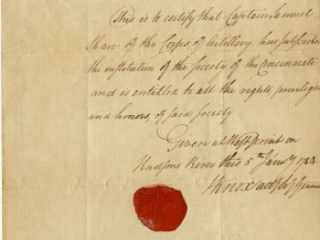 This is to certify that Captain Samuel
Shaw of the Corps of Artillery has subscribed
the institution of the Society of the Cincinnati
and is entitled to all the rights, privileges
and honors, of said Society
Given at West point on
Hudsons River this 5th
HKnox